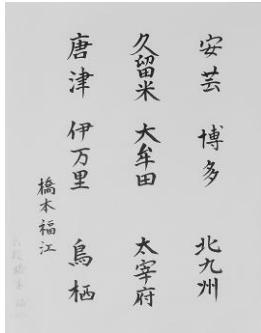 安芸 博多 北九州
久留米 大牟田 太宰府
唐津 伊万里 鳥栖
橋本福江